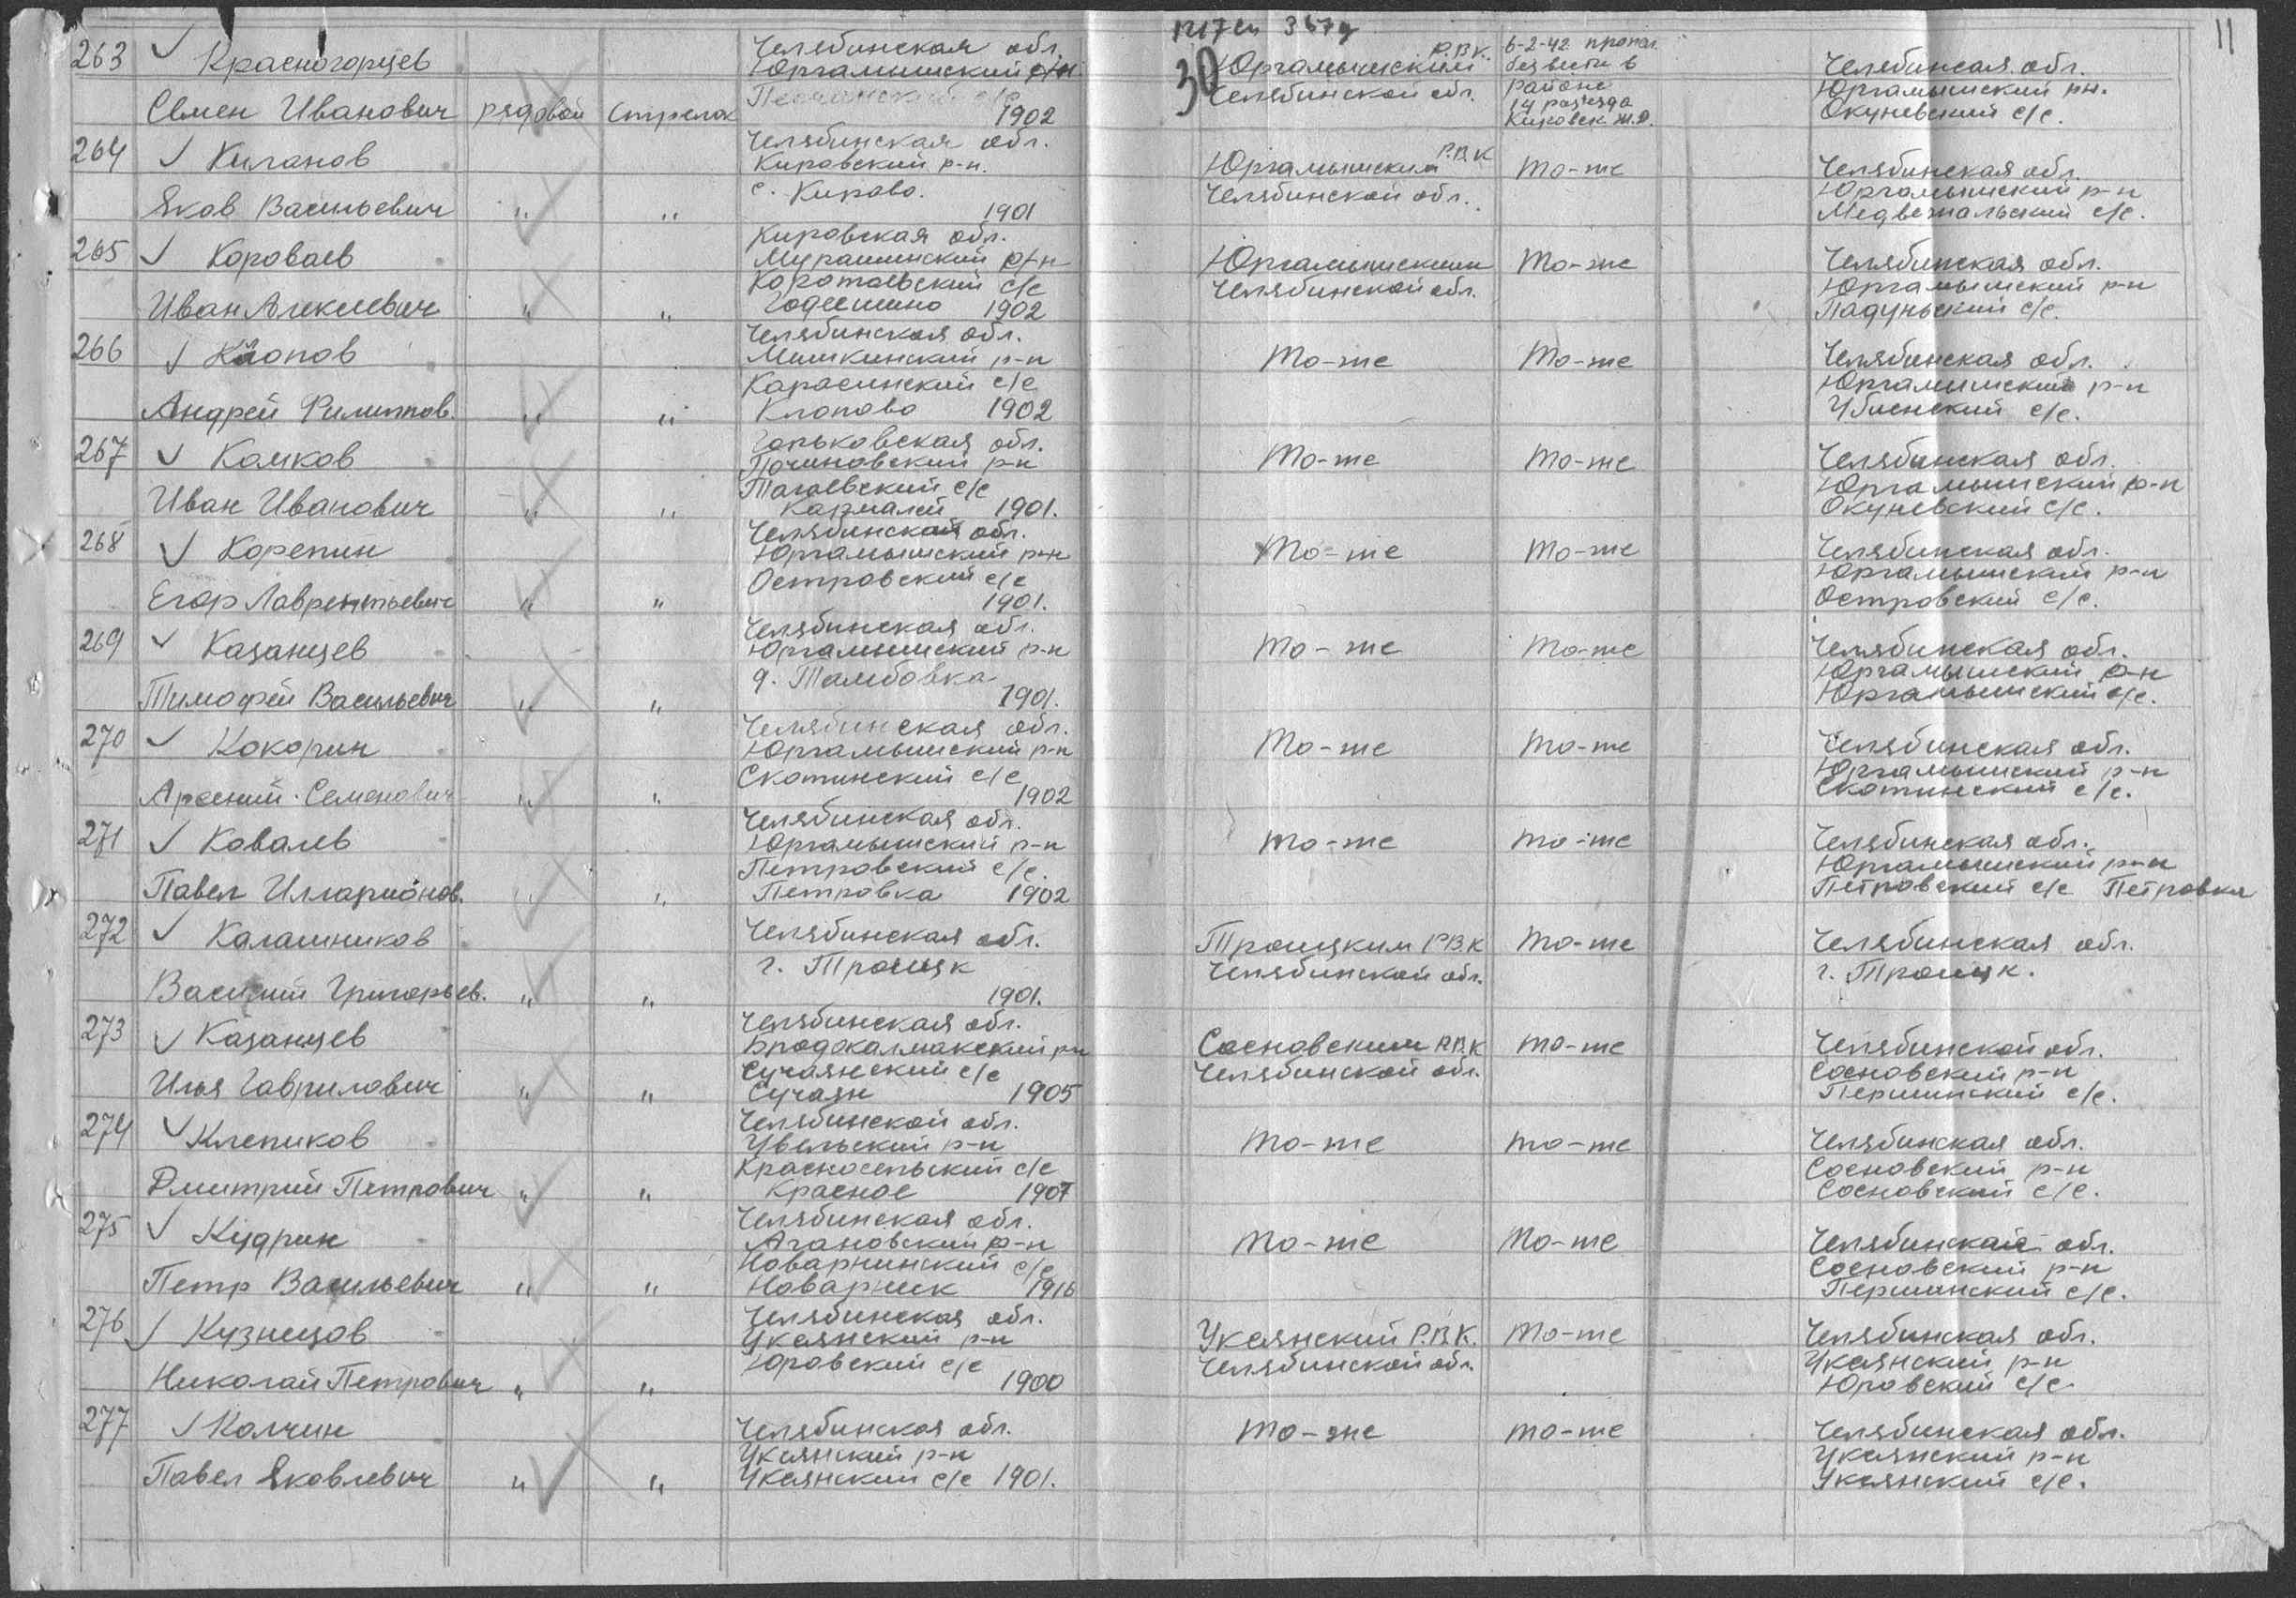 1217 сп 367 д
11
30
263 Красногорцев
Семен Иванович рядовой Стрелок
Челябинская обл.
Юргамышский р/н
Песчанский с/с
1902
Юргамышским Р.В.К.
Челябинской обл.
6-2-42 пропал
без вести в
районе
14 разъезда
Кировск. ж.д.
Челябинская обл.
Юргамышский рн.
Окуневский с/с.
264 Киланов
Яков Васильевич " "
Челябинская обл.
Кировский р-н.
с. Кирово.
1901
Юргамышским Р.В.К
Челябинской обл.
то-же
Челябинская обл.
Юргамышский р-н
Медвежальский с/с.
265 Короваев
Иван Алексеевич " "
Кировская обл.
Мурашинский р/н
с/с
1902
Юргамышским
Челябинской обл.
то-же
Челябинская обл.
Юргамышский р-н
Падунский с/с.
266 Клопов
Андрей Филиппов. " "
Челябинская обл.
Мишкинский р-н
Карасинский с/с
Клопово 1902
то-же
то-же
Челябинская обл.
Юргамышский р-н
Убиенский с/с.
267 Комков
Иван Иванович " "
Горьковская обл.
Починовский р-н
Тагаевский с/с
Кармалей 1901.
то-же
то-же
Челябинская обл.
Юргамышский р-н
Окуневский с/с.
268 Корепин
Егор Лаврентьевич " "
Челябинская обл.
Юргамышский р-н
Островский с/с
1901.
то-же
то-же
Челябинская обл.
Юргамышский р-н
Островский с/с.
269 Казанцев
Тимофей Васильевич " "
Челябинская обл.
Юргамышский р-н
д. Тамбовка
1901.
то-же
то-же
Челябинская обл.
Юргамышский р-н
Юргамышский с/с.
270 Кокорин
Арсений Семенович " "
Челябинская обл.
Юргамышский р-н
Скотинский с/с
1902
то-же
то-же
Челябинская обл.
Юргамышский р-н
Скотинский с/с.
271 Коваль
Павел Илларионов. " "
Челябинская обл.
Юргамышский р-н
Петровский с/с.
Петровка 1902
то-же
то-же
Челябинская обл.
Юргамышский р-н
Петровский с/с Петровка
272 Калашников
Василий Григорьев. " "
Челябинская обл.
г. Троицк
1901.
Троицким Р.В.К
Челябинской обл.
то-же
Челябинская обл.
г. Троицк.
273 Казанцев
Илья Гаврилович " "
Челябинская обл.
Бродокалмакский рн
Сугоянский с/с
Сугоян 1905
Сосновским Р.В.К
Челябинской обл.
то-же
Челябинской обл.
Сосновский р-н
Першинский с/с.
274 Клепиков
Дмитрий Петрович " "
Челябинской обл.
Увельский р-н
Красносельский с/с
Красное 1907
то-же
то-же
Челябинская обл.
Сосновский р-н
Сосновский с/с.
275 Кудрин
Петр Васильевич " "
Челябинская обл.
Агаповский р-н
с/с
1916
то-же
то-же
Челябинская обл.
Сосновский р-н
Першинский с/с.
276 Кузнецов
Николай Петрович " "
Челябинская обл.
Уксянский р-н
Юровский с/с
1900
Уксянский Р.В.К.
Челябинской обл.
то-же
Челябинская обл.
Уксянский р-н
Юровский с/с
277 Колчин
Павел Яковлевич " "
Челябинская обл.
Уксянский р-н
Уксянский с/с 1901.
то-же
то-же
Челябинская обл.
Уксянский р-н
Уксянский с/с.